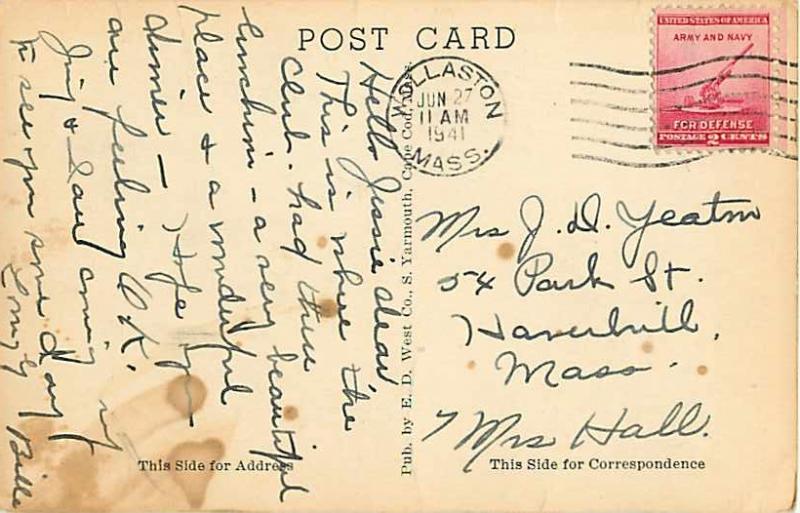 POST CARD
UNITED STATES OF AMERICA
ARMY AND NAVY
FOR DEFENSE
POSTAGE 2 CENTS
WOLLASTON
JUN 27
11 AM
1941
MASS.
Hello Jessie dear
This is where the
Club. had their
lunchin - a very beautiful
place & a wonderful
dinner - Hope you
are feeling O.K.
Jim & I are coming up
to see you some day
Bille
Pub. by E. D. West Co., S. Yarmouth, Cape Cod, Mass.
Mrs J. D. Yeaton
54 Park St.
Haverhill,
Mass.
Mrs Hall.
This Side for Address
This Side for Correspondence